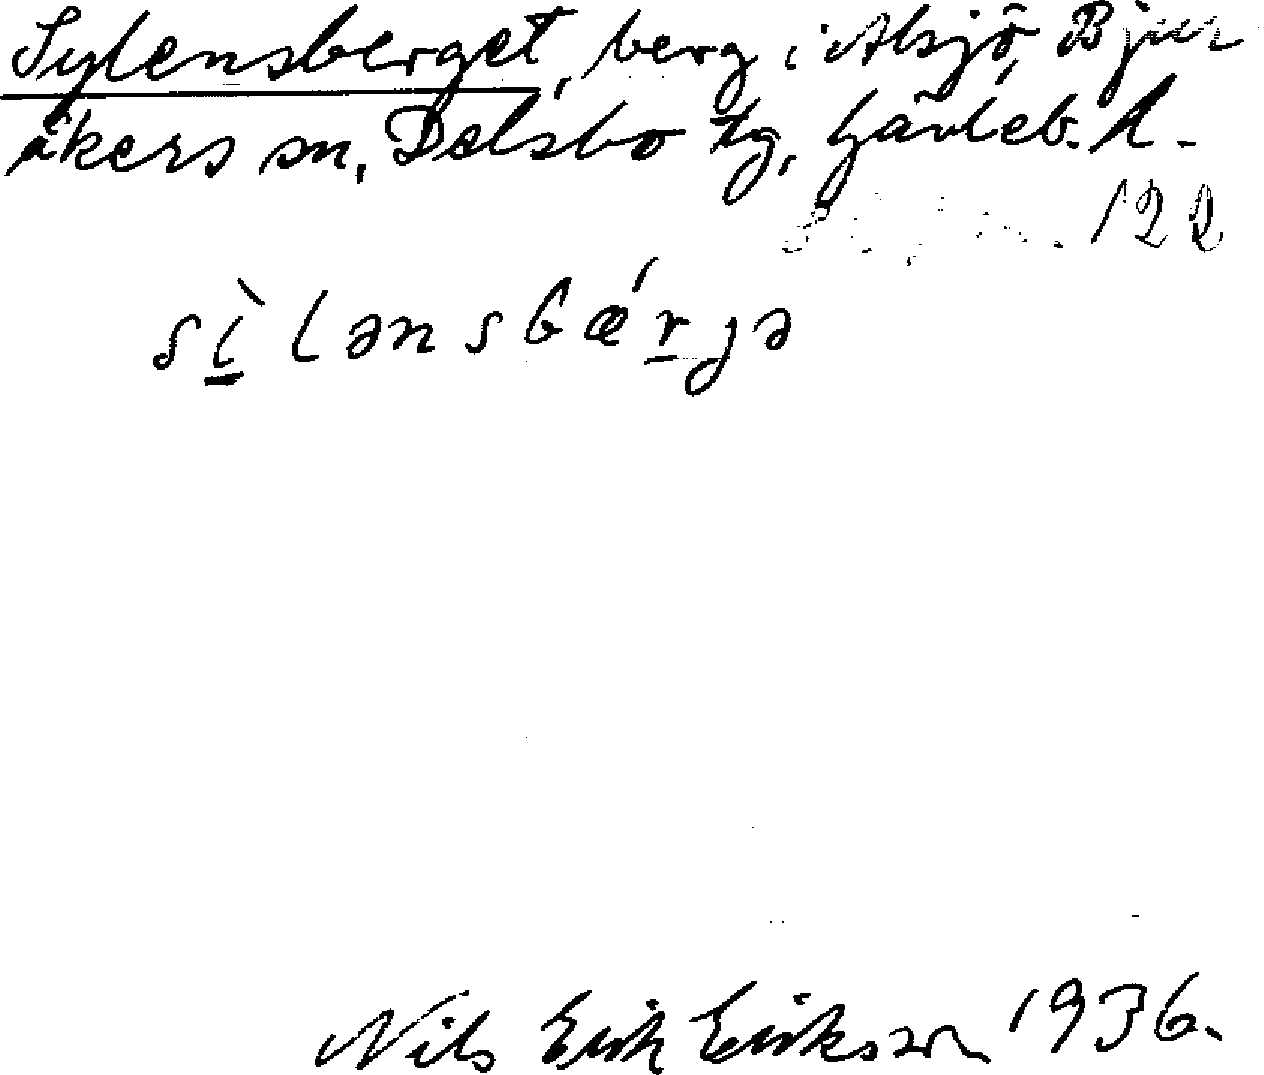 Sylensberget, berg i Alsjö, Bjur
åkers sn, Delsbo tg, Gävleb. l.
122
sìlənsbǽrjə
Nils Erik Eriksson 1936.